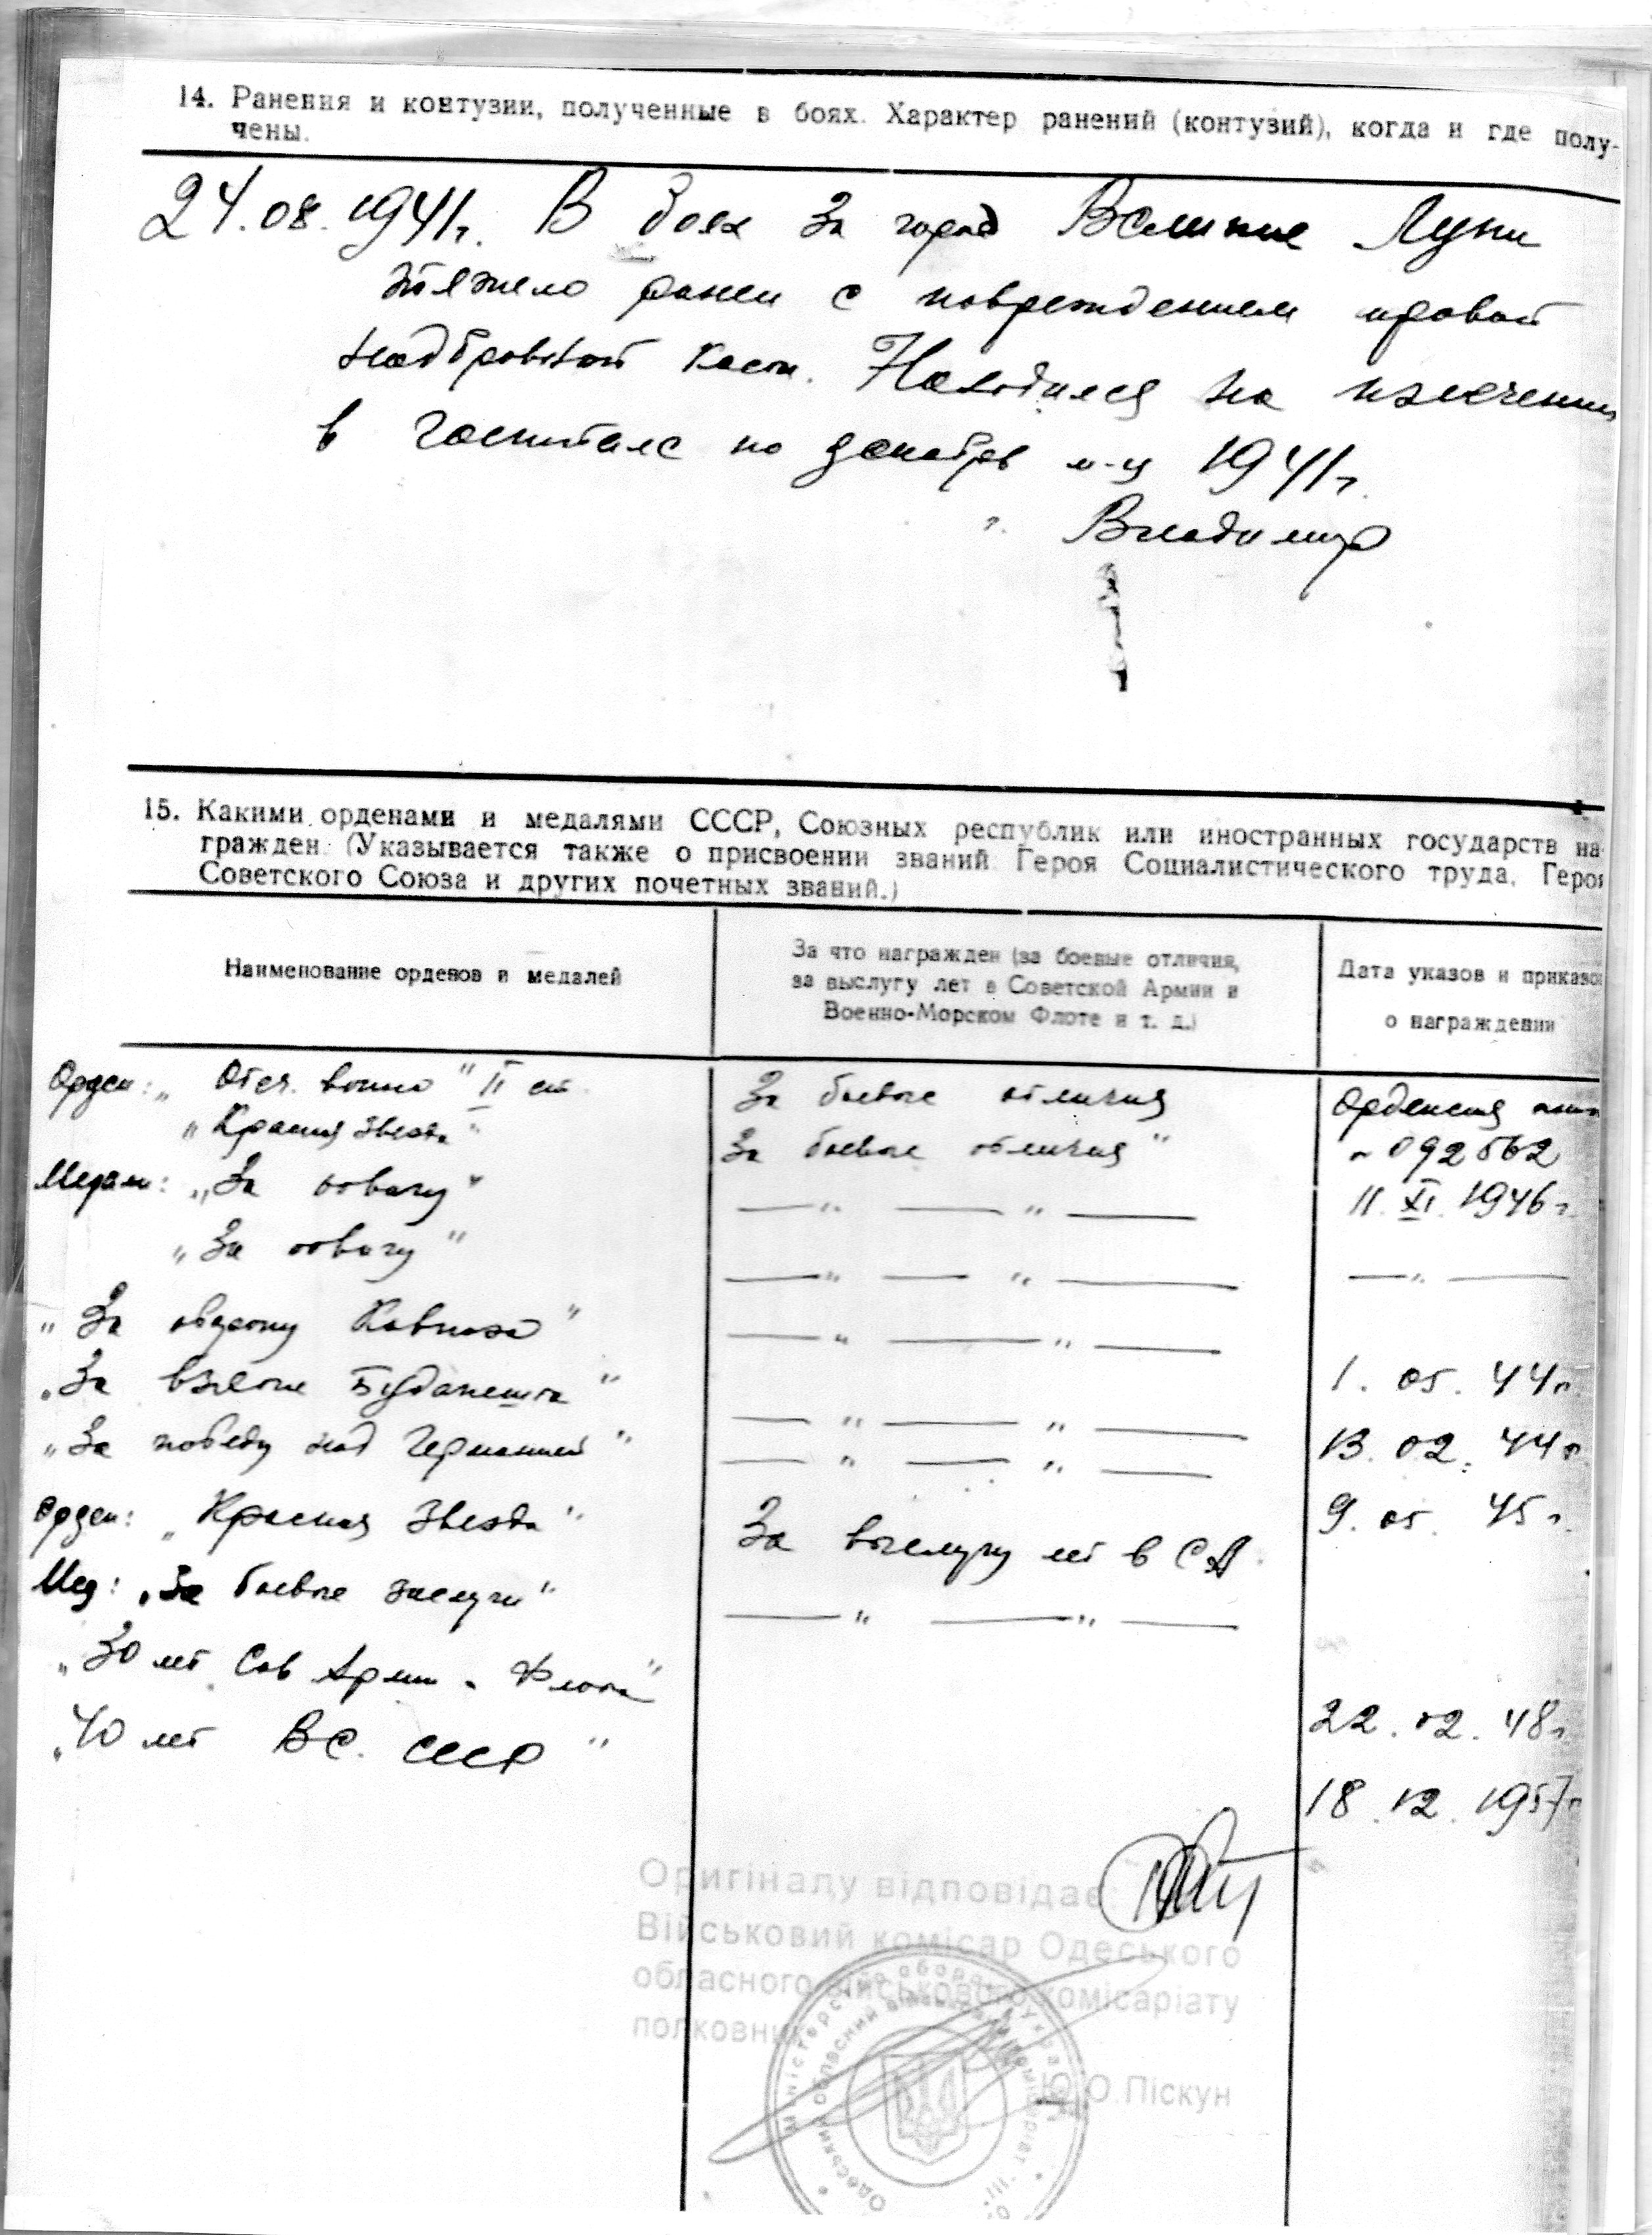 14. Ранения и контузии, полученные в боях. Характер ранений (контузий), когда и где полу-
чены.
24.08.1941г. В боях за город Великие Луки
тяжело ранен с повреждением правой
надбровной кости. Находился на излечении
в госпитале по декабрь м-ц 1941г.
г. Владимир
15. Какими орденами и медалями СССР, Союзных республик или иностранных государств на-
гражден. (Указывается также о присвоении званий Героя Социалистического труда, Героя
Советского Союза и других почетных званий.)
Наименование орденов и медалей
За что награжден (за боевые отличия,
за выслугу лет в Советской Армии и
Военно-Морском Флоте и т. д.)
Дата указов и приказо
о награждении
Орден: „Отеч. войны" II ст. За боевые отличия Орденская
„Красная звезда" За боевые отличия" 092562
Медали: „За отвагу" — " — " — 11. XI. 1946г.
„За отвагу" — " — " — — " —
„За оборону Кавказа" — " — " — 1. 05. 44г.
„За взятие Будапешта" — " — " — 13. 02. 44г.
„За победу над Германией" — " — " — 9. 05. 45г.
Орден: „Красная звезда" За выслугу лет в СА.
Мед: „За боевые заслуги" — " — " —
„30 лет Сов Арм и Флота" 22. 02. 48г.
„40 лет ВС. СССР" 18. 12. 1957г
Оригіналу відповідає:
Військовий комісар Одеського
обласного військового комісаріату
полковник
Ю.О.Піскун